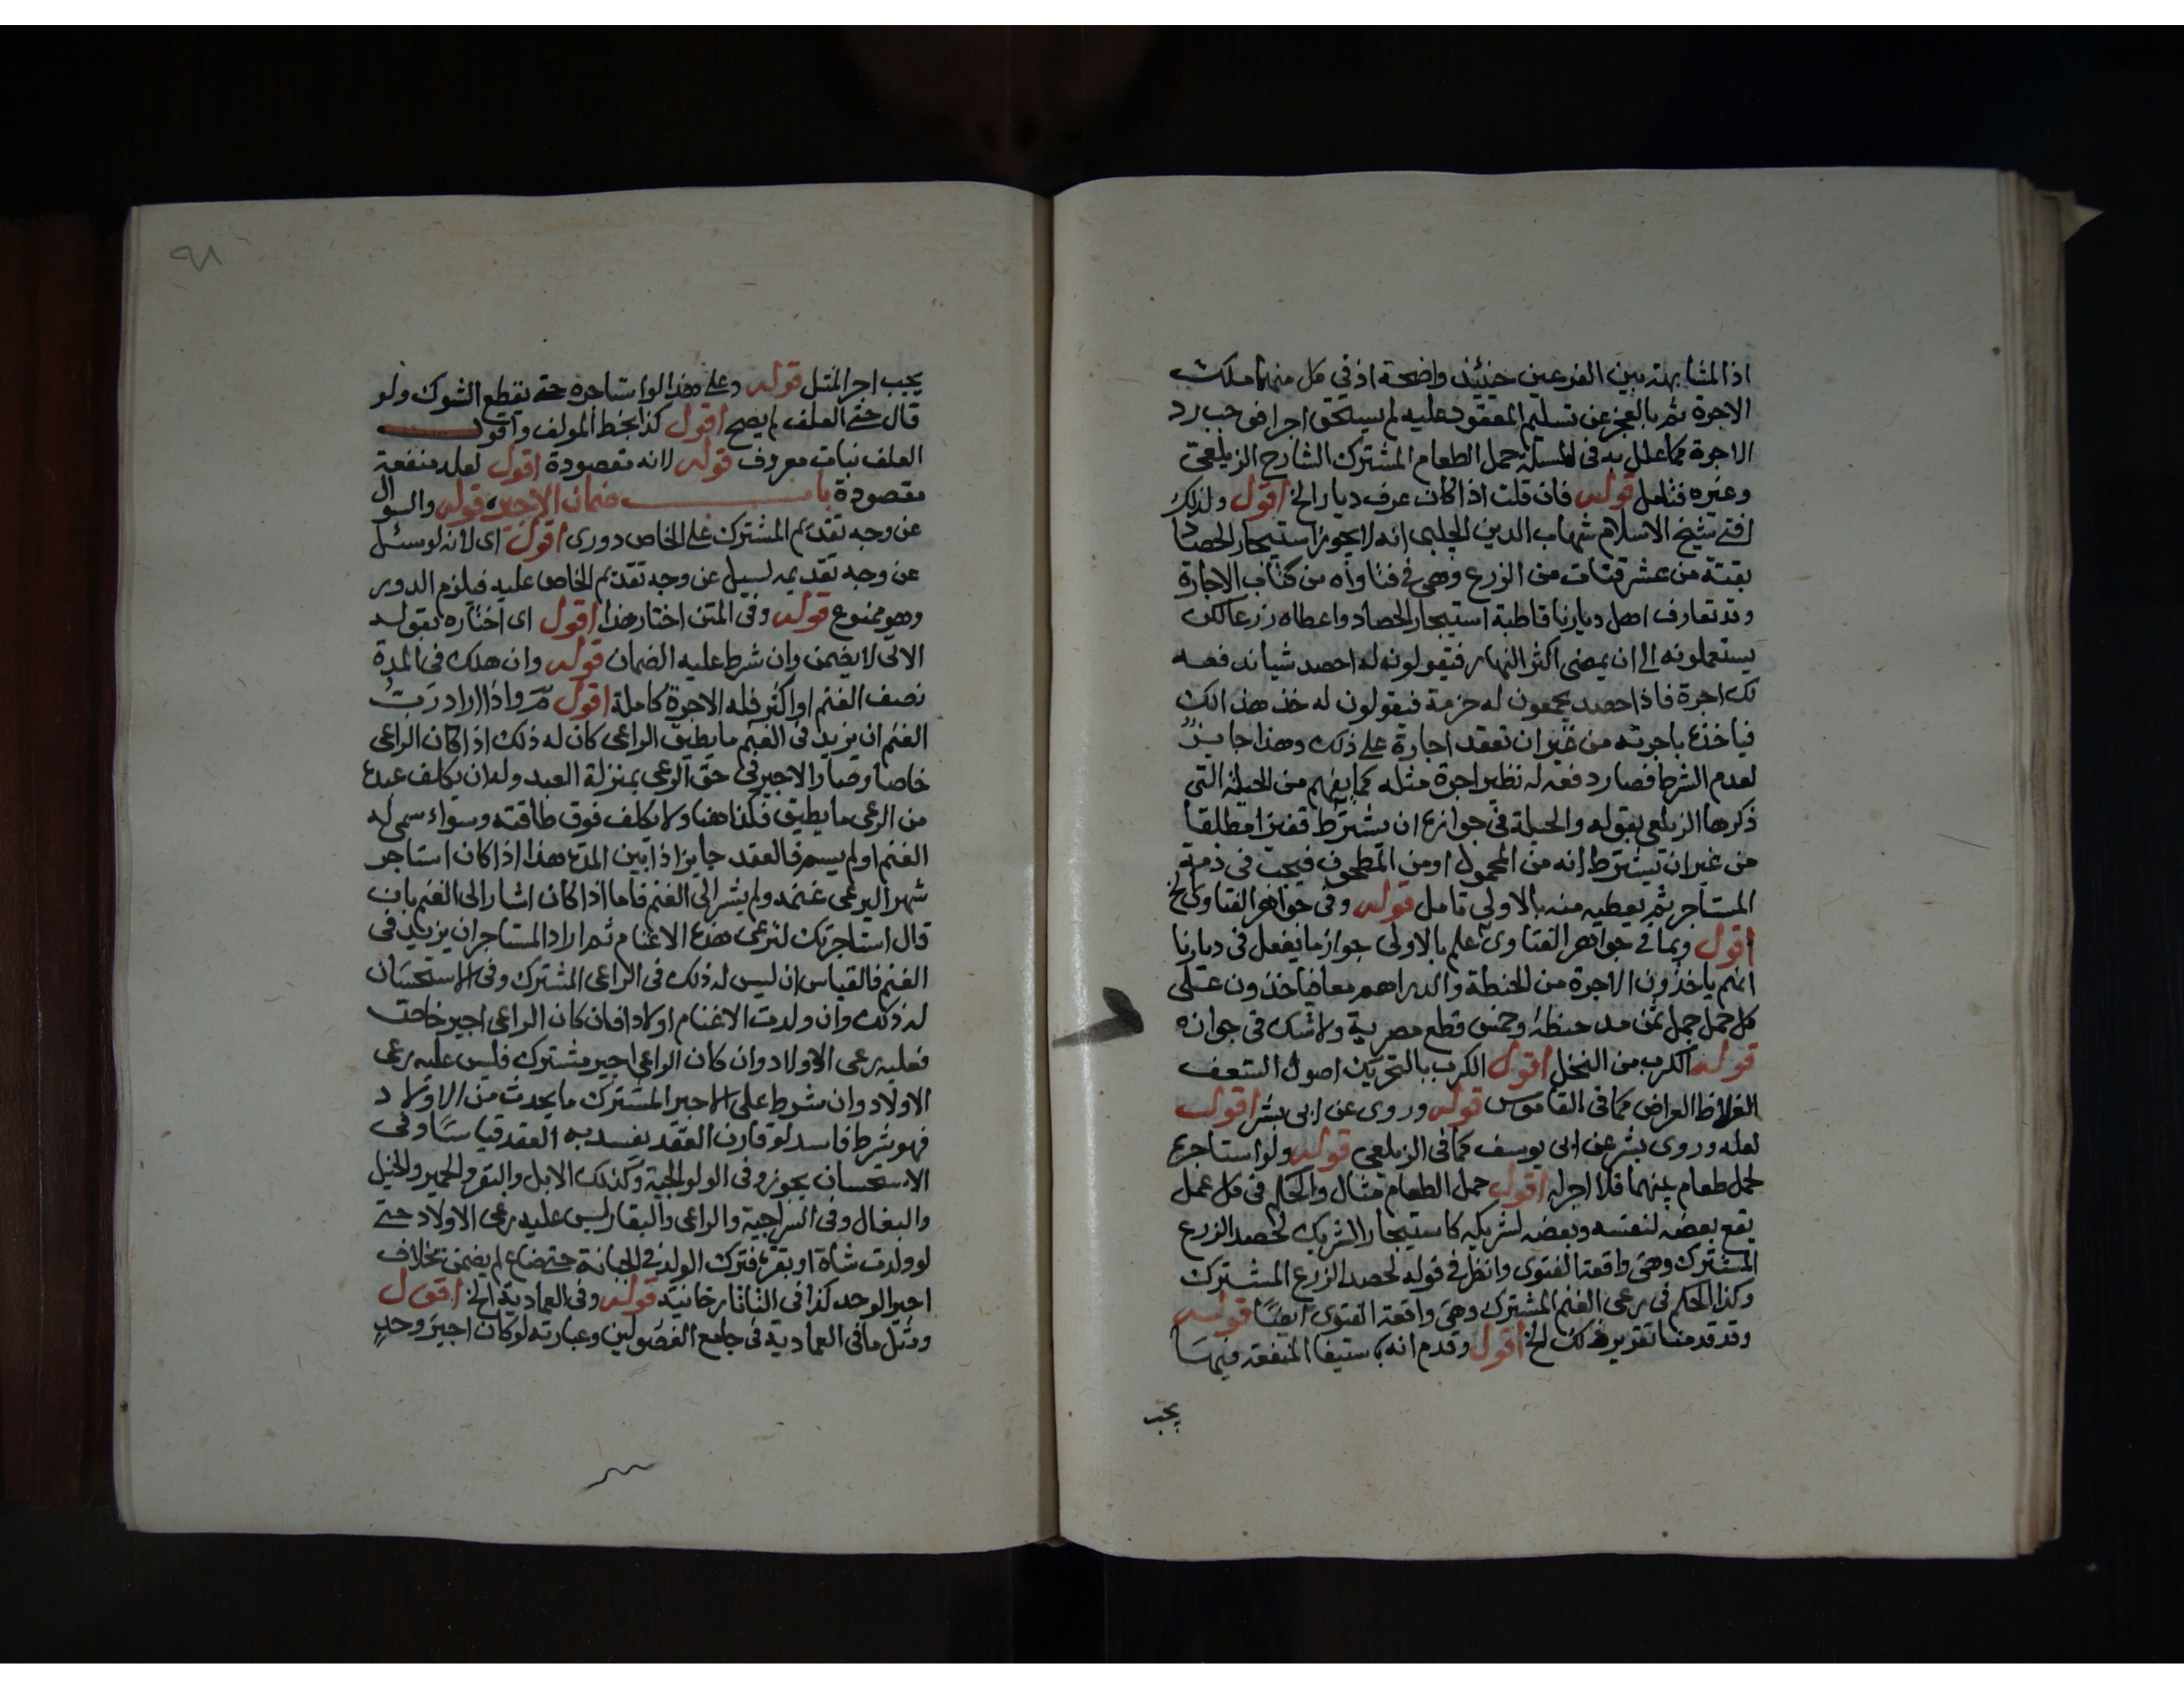 اذ المشابهة بين الفرعين حينئذ واضحة اذ في كل منهما ملكت
الاجرة ثم بالعجز عن تسليم المعقود عليه لم يستحق اجرا فوجب رد
الاجرة كما علل به في المسئلة حمل الطعام المشترك الشارح الزيلعي
وغيره فتامل قوله فان قلت اذا كان عرف ديار الخ اقول ولذلك
افتى شيخ الاسلام شهاب الدين الچلبي انه لا يجوز استيجار الحصاد
بقتة من عشر قتات من الزرع وهي في فتاواه من كتاب الاجارة
وقد تعارف اهل ديارنا قاطبة استيجار الحصاد واعطاه زرعا لكن
يستعملونه الى ان يمضى اكثر النهار فيقولون له احصد شيا ندفعه
لك اجرة فاذا حصد يجمعون له حزمة فيقولون له خذ هذا لك
فياخذه باجرته من غير ان تعقد اجارة على ذلك وهذا جايز
لعدم الشرط فصار دفعه له نظير اجرة مثله كما يفهم من الحيلة التي
ذكرها الزيلعي بقوله والحيلة في جوازه ان يشترط قفيزا مطلقا
من غير ان يشترط انه من المحمول او من المطحون فيجب في ذمة
المستاجر ثم يعطيه منه بالاولى تامل قوله وفي جواهر الفتاوى الخ
اقول وبما في جواهر الفتاوى علم بالاولى جواز ما يفعل في ديارنا
انهم ياخذون الاجرة من الحنطة والدراهم معا فياخذون على
كل حمل جمل ثمن مد حنطة وخمس قطع مصرية ولا شك في جوازه
قوله الكرب من النخل اقول الكرب بالتحريك اصول السعف
الغلاظ العراض كما في القاموس قوله وروى عن ابي بشر اقول
لعله وروى بشر عن ابي يوسف كما في الزيلعي قوله ولو استاجره
لحمل طعام بينهما فلا اجر له اقول حمل الطعام مثال والحكم في كل عمل
يقع بعضه لنفسه وبعضه لشريكه كاستيجار الشريك لحصد الزرع
المشترك وهي واقعة الفتوى وانظر في قوله لحصد الزرع المشترك
وكذا الحكم في رعي الغنم المشترك وهي واقعة الفتوى ايضا قوله
وقد قدمنا تقرير ذلك الخ اقول وقدم انه باستيفا المنفعة فيها
يجب
٩٨
يجب اجر المثل قوله وعلى هذا لو استاجره حتى يقطع الشوك ولو
قال حتى العلف لم يصح اقول كذا بخط المولف واقول
العلف نبات معروف قوله لانه مقصودة اقول لعله منفعة
مقصودة باب ضمان الاجير قوله والسوال
عن وجه تقديم المشترك على الخاص دوري اقول اي لانه لو سئل
عن وجه تقديمه لسيل عن وجه تقديم الخاص عليه فيلزم الدور
وهو ممنوع قوله وفي المتن اختار هذا اقول اي اختاره بقوله
الاتي لا يضمن وان شرط عليه الضمان قوله وان هلك في المدة
نصف الغنم او اكثر فله الاجرة كاملة اقول واذا اراد رب
الغنم ان يزيد في الغنم ما يطيق الراعي كان له ذلك اذا كان الراعي
خاصا وصار الاجير في حق الرعي بمنزلة العبد وله ان يكلف عبده
من الرعي ما يطيق فكذا هنا ولا يكلف فوق طاقته وسواء سمى له
الغنم او لم يسم فالعقد جايز اذا بين المدة هذا اذا كان استاجر
شهرا ليرعى غنمه ولم يشر الى الغنم فاما اذا كان اشار الى الغنم بان
قال استاجرتك لترعى هذه الاغنام ثم اراد المستاجر ان يزيد في
الغنم فالقياس ان ليس له ذلك في الراعي المشترك وفي الاستحسان
له ذلك وان ولدت الاغنام اولادا فان كان الراعي اجير خاص
فعليه رعي الاولاد وان كان الراعي اجير مشترك فليس عليه رعي
الاولاد وان شرط على الاجير المشترك ما يحدث من الاولاد
فهو شرط فاسد لو قارن العقد يفسد به العقد قياسا وفي
الاستحسان يجوز وفي الولوالجية وكذلك الابل والبقر والحمير والخيل
والبغال وفي السراجية والراعي والبقار ليس عليه رعي الاولاد حتى
لو ولدت شاة او بقرة فترك الولد في الجبانة حتى ضاع لم يضمن بخلاف
اجير الوحد كذا في التاتارخانية قوله وفي العمادية الخ اقول
ومثل ما في العمادية في جامع الفصولين وعبارته لو كان اجير وحد